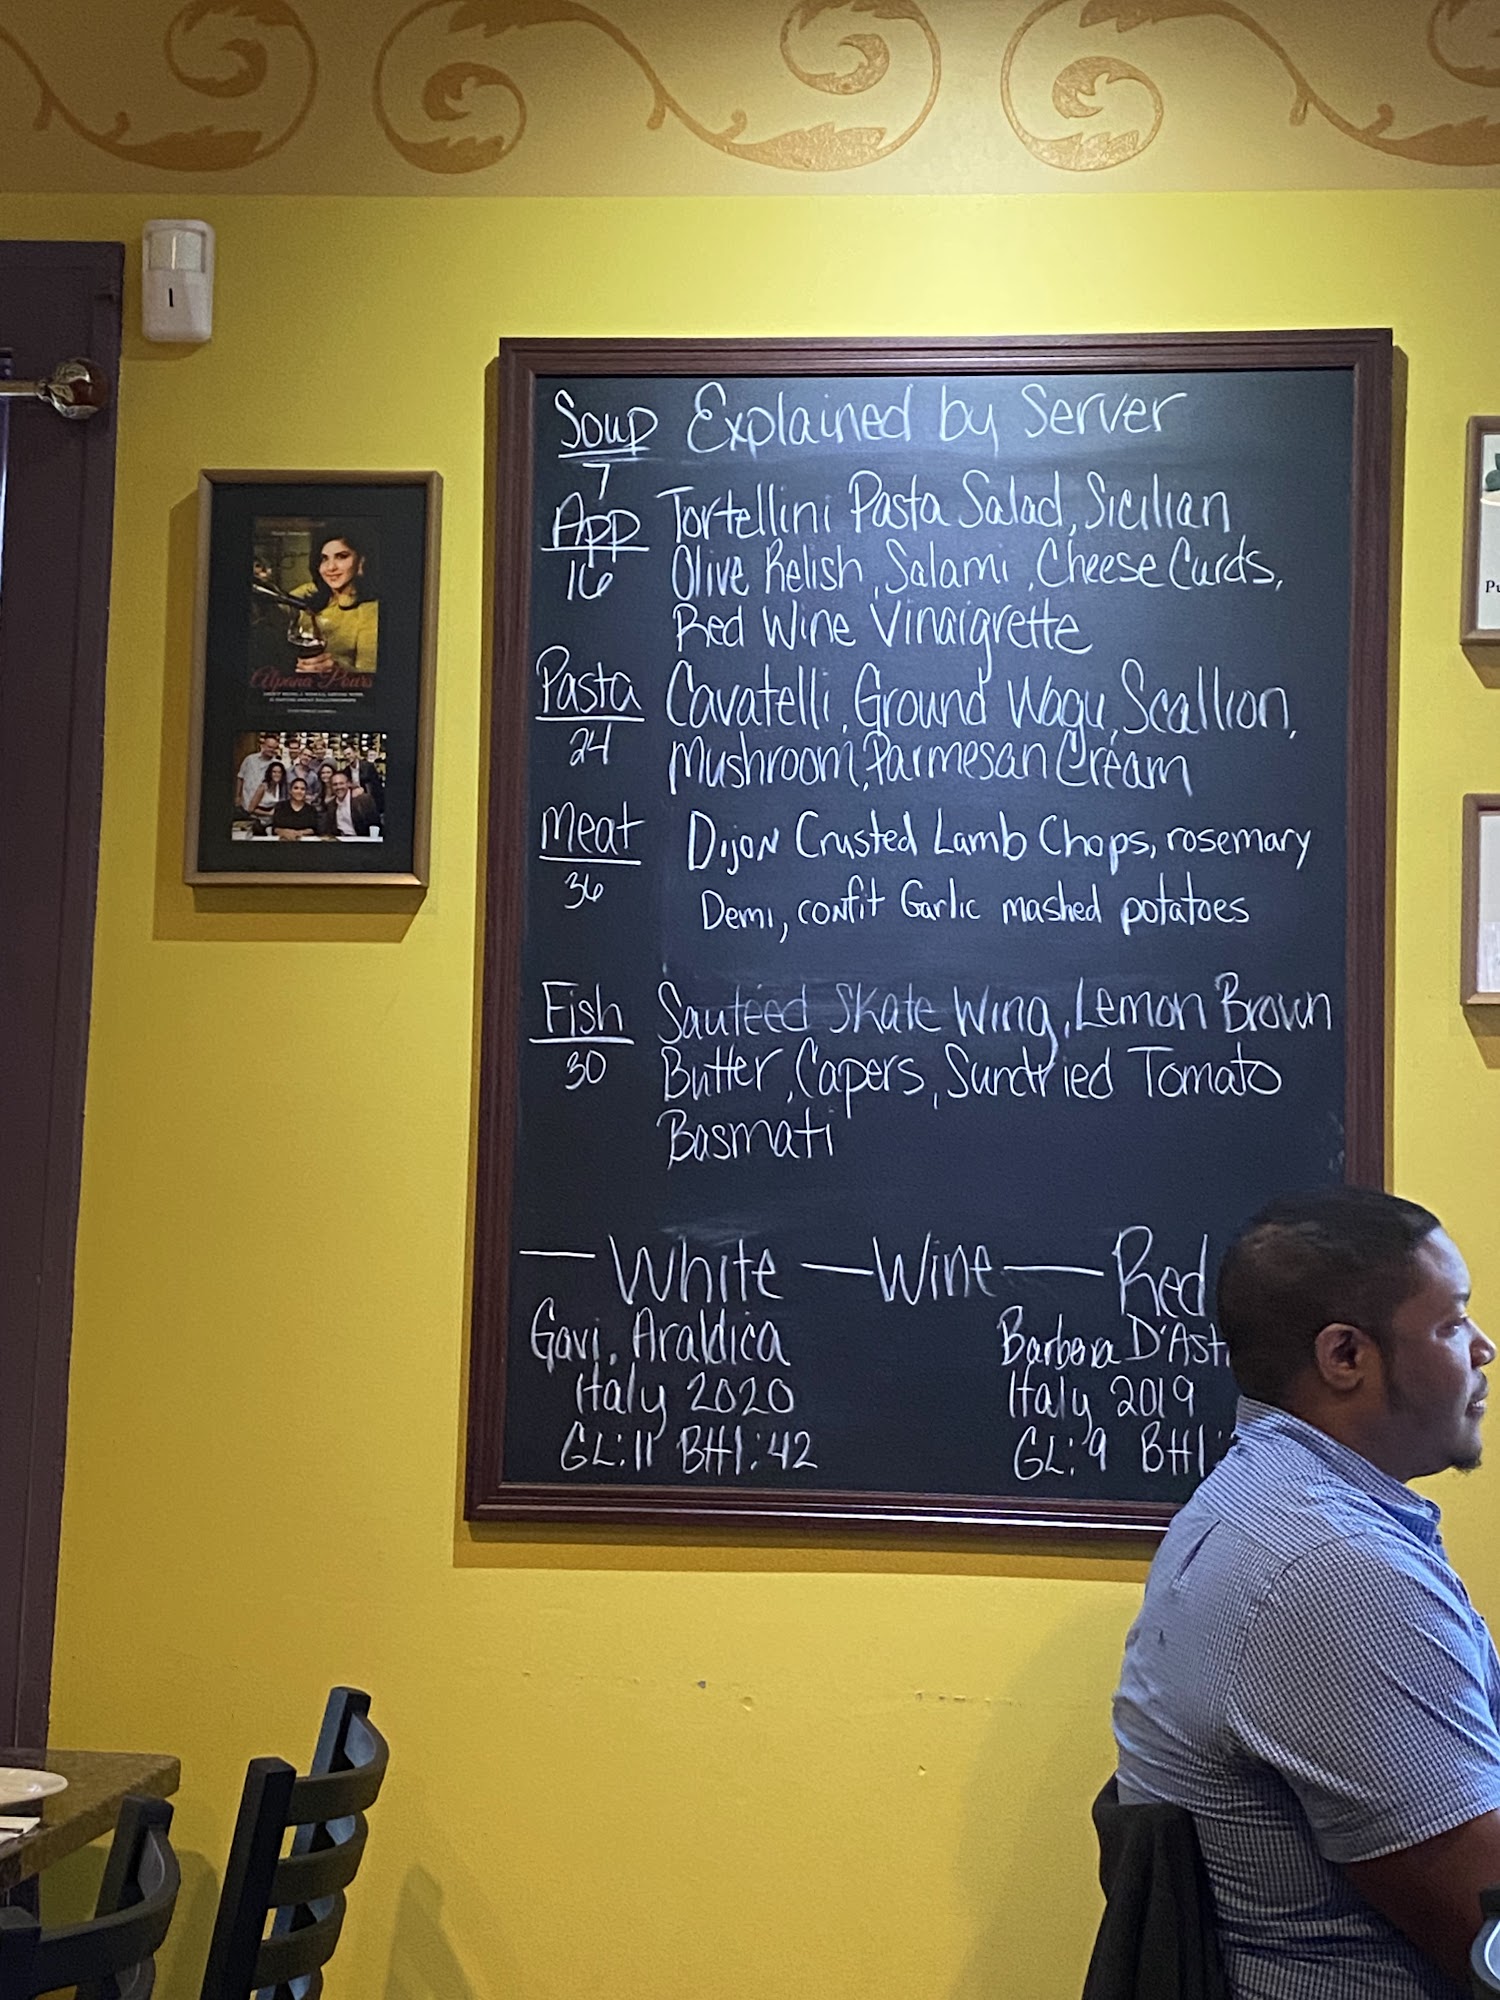 Soup Explained by Server
7
App Tortellini Pasta Salad, Sicilian
16 Olive Relish, Salami, Cheese Curds,
Red Wine Vinaigrette
Pasta Cavatelli, Ground Wagu, Scallion,
24 Mushroom, Parmesan Cream
Meat Dijon Crusted Lamb Chops, rosemary
36 Demi, confit Garlic mashed potatoes
Fish Sauteéd Skate Wing, Lemon Brown
30 Butter, Capers, Sundried Tomato
Basmati
— White — Wine — Red
Gavi, Araldica
Italy 2020
GL: 11 Btl: 42
Barbera D'Asti
Italy 2019
GL: 9 Btl:
Alpana Pours